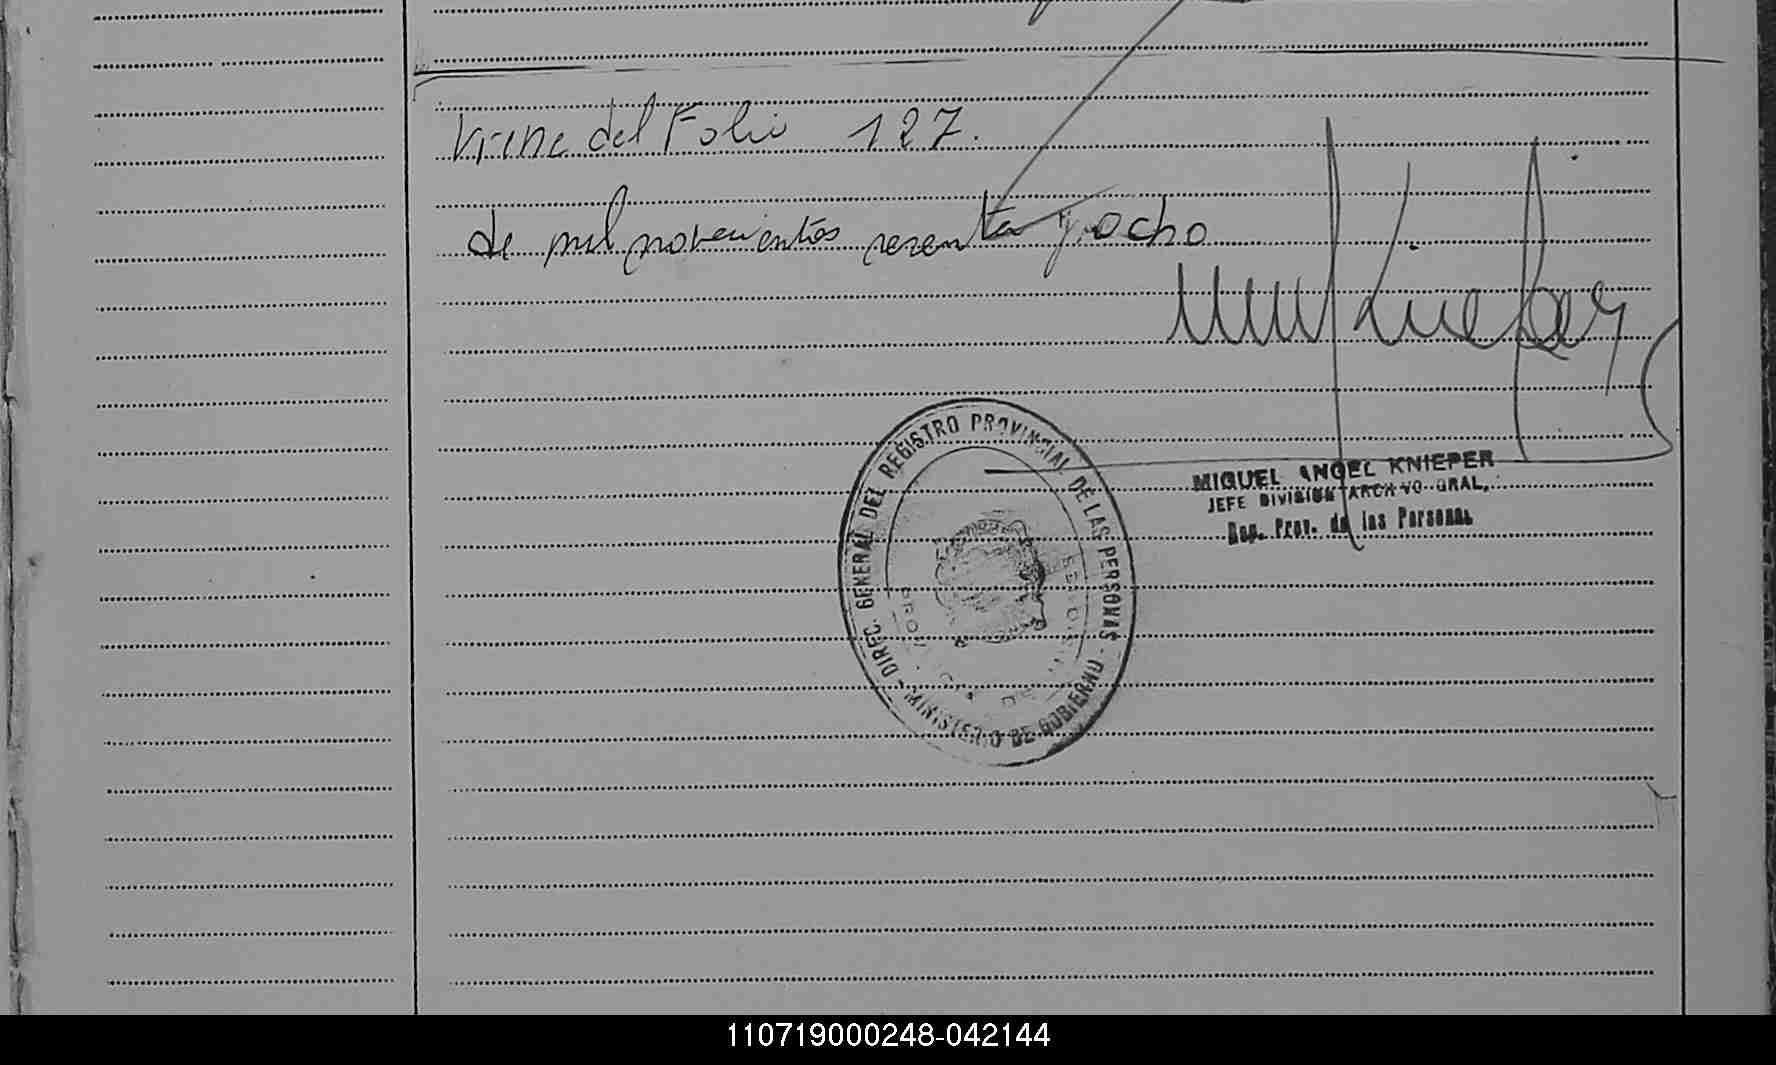 Viene del Folio 127.
de mil novecientos sesenta y ocho
DIREC. GENERAL DEL REGISTRO PROVINCIAL DE LAS PERSONAS -
- MINISTERIO DE GOBIERNO -
MIGUEL ANGEL KNIEPER
JEFE DIVISION ARCHIVO GRAL.
Reg. Prov. de las Personas
110719000248-042144